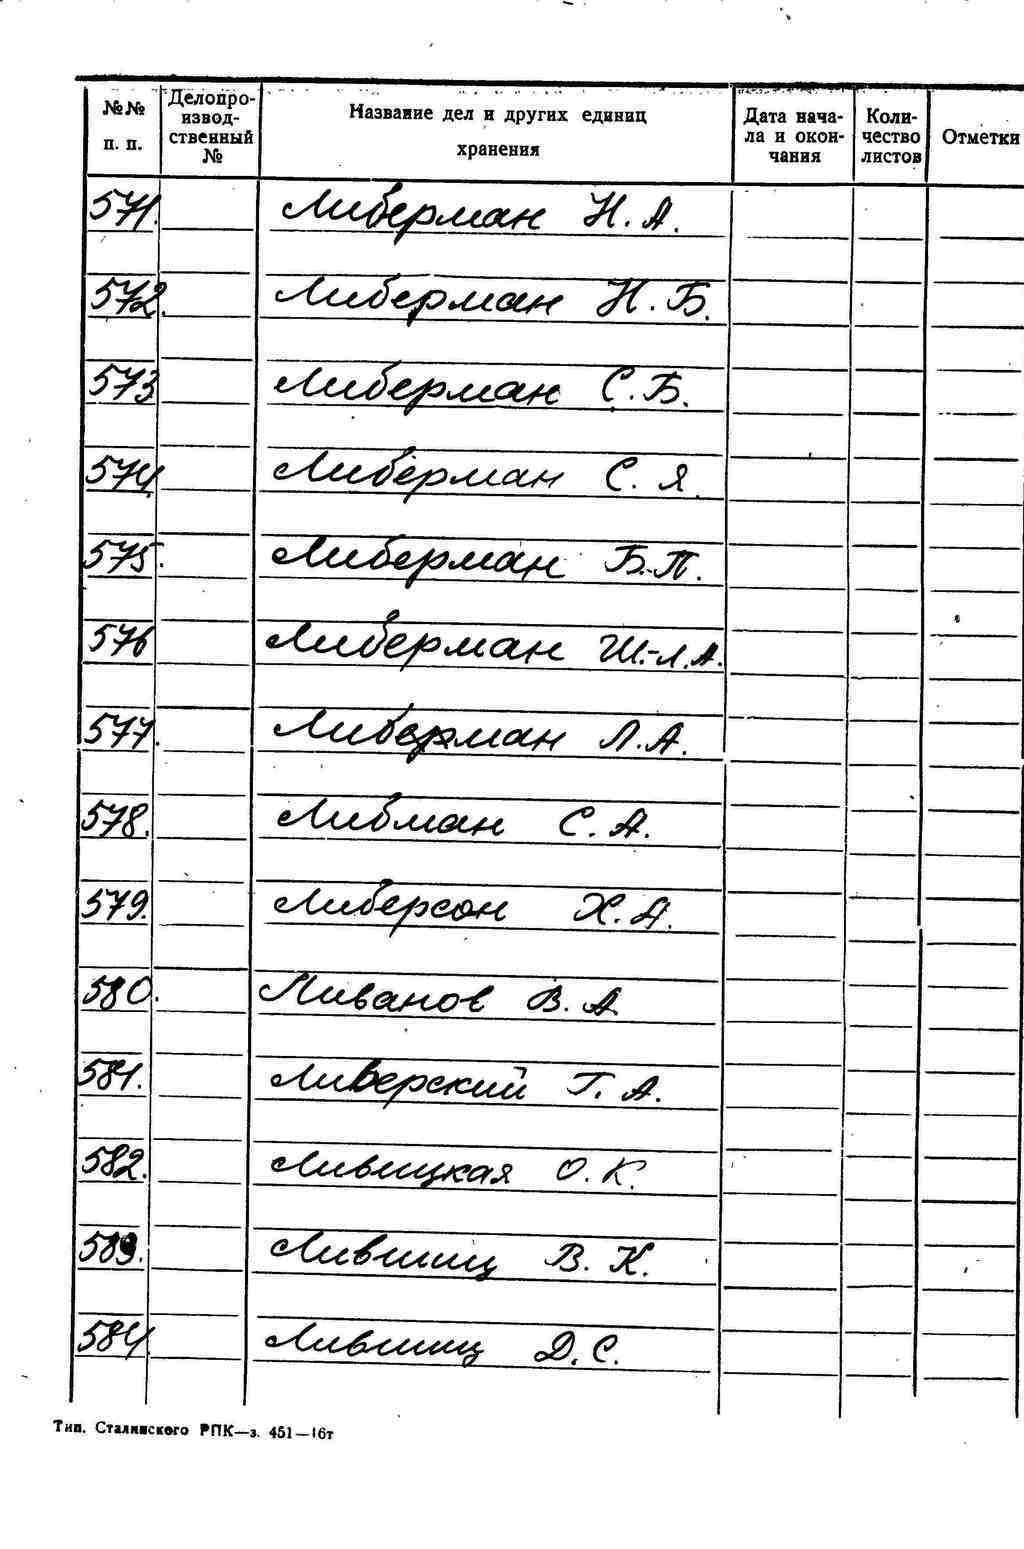 №№ п. п. Делопроизводственный № Название дел и других единиц хранения Дата начала и окончания Количество листов Отметки
571. Либерман Н. А.
572. Либерман Н. Б.
573 Либерман С. Б.
574 Либерман С. Я.
575. Либерман Б.-П.
576 Либерман Ш.-Л. А.
577. Либерман Л. А.
578. Либман С. А.
579. Либерсон Х. А.
580. Ливанов В. А.
581. Ливерский Г. А.
582. Ливицкая О. К.
583. Лившиц В. К.
584. Лившиц Д. С.
Тип. Сталинского РПК—з. 451—16т